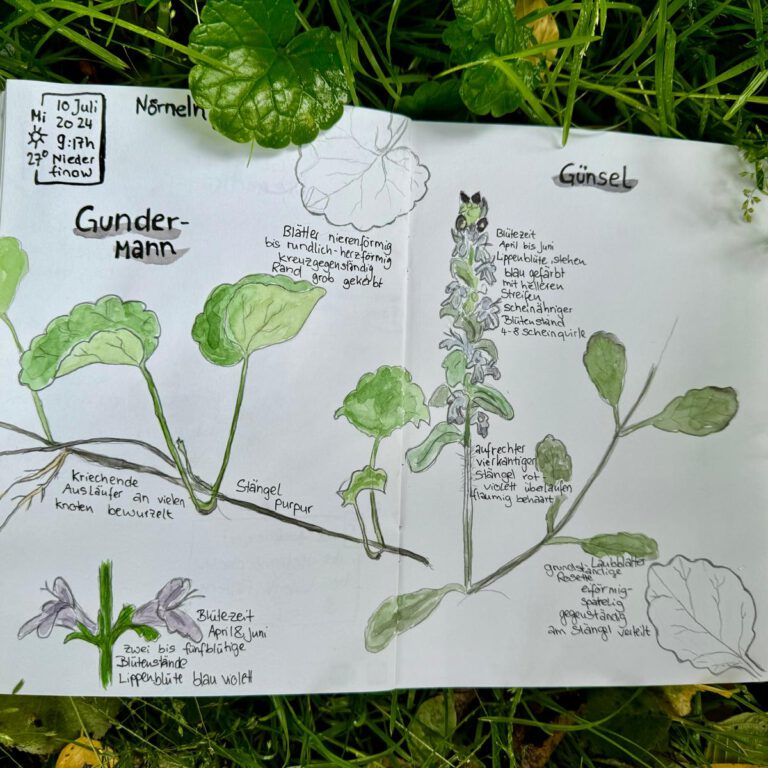 Mi
10 Juli
2024
9:17h
27° Nieder
finow
Nörneln
Gunder-
mann
Blätter nierenförmig
bis rundlich-herzförmig
kreuzgegenständig
Rand grob gekerbt
Kriechende
Ausläufer an vielen
knoten bewurzelt
Stängel
purpur
Blütezeit
April & juni
zwei bis fünfblütige
Blütenstände
Lippenblüte blau violett
Günsel
Blütezeit
April bis juni
Lippenblüte, stehen
blau gefärbt
mit helleren
Streifen
scheinähriger
Blütenstand
4-8 scheinquirle
aufrechter
vierkantiger
Stängel rot-
violett überlaufen
flaumig behaart
grundst. Laubblätter
ständige
Rosette
eiförmig-
spatelig
gegenständig
am Stängel verteilt